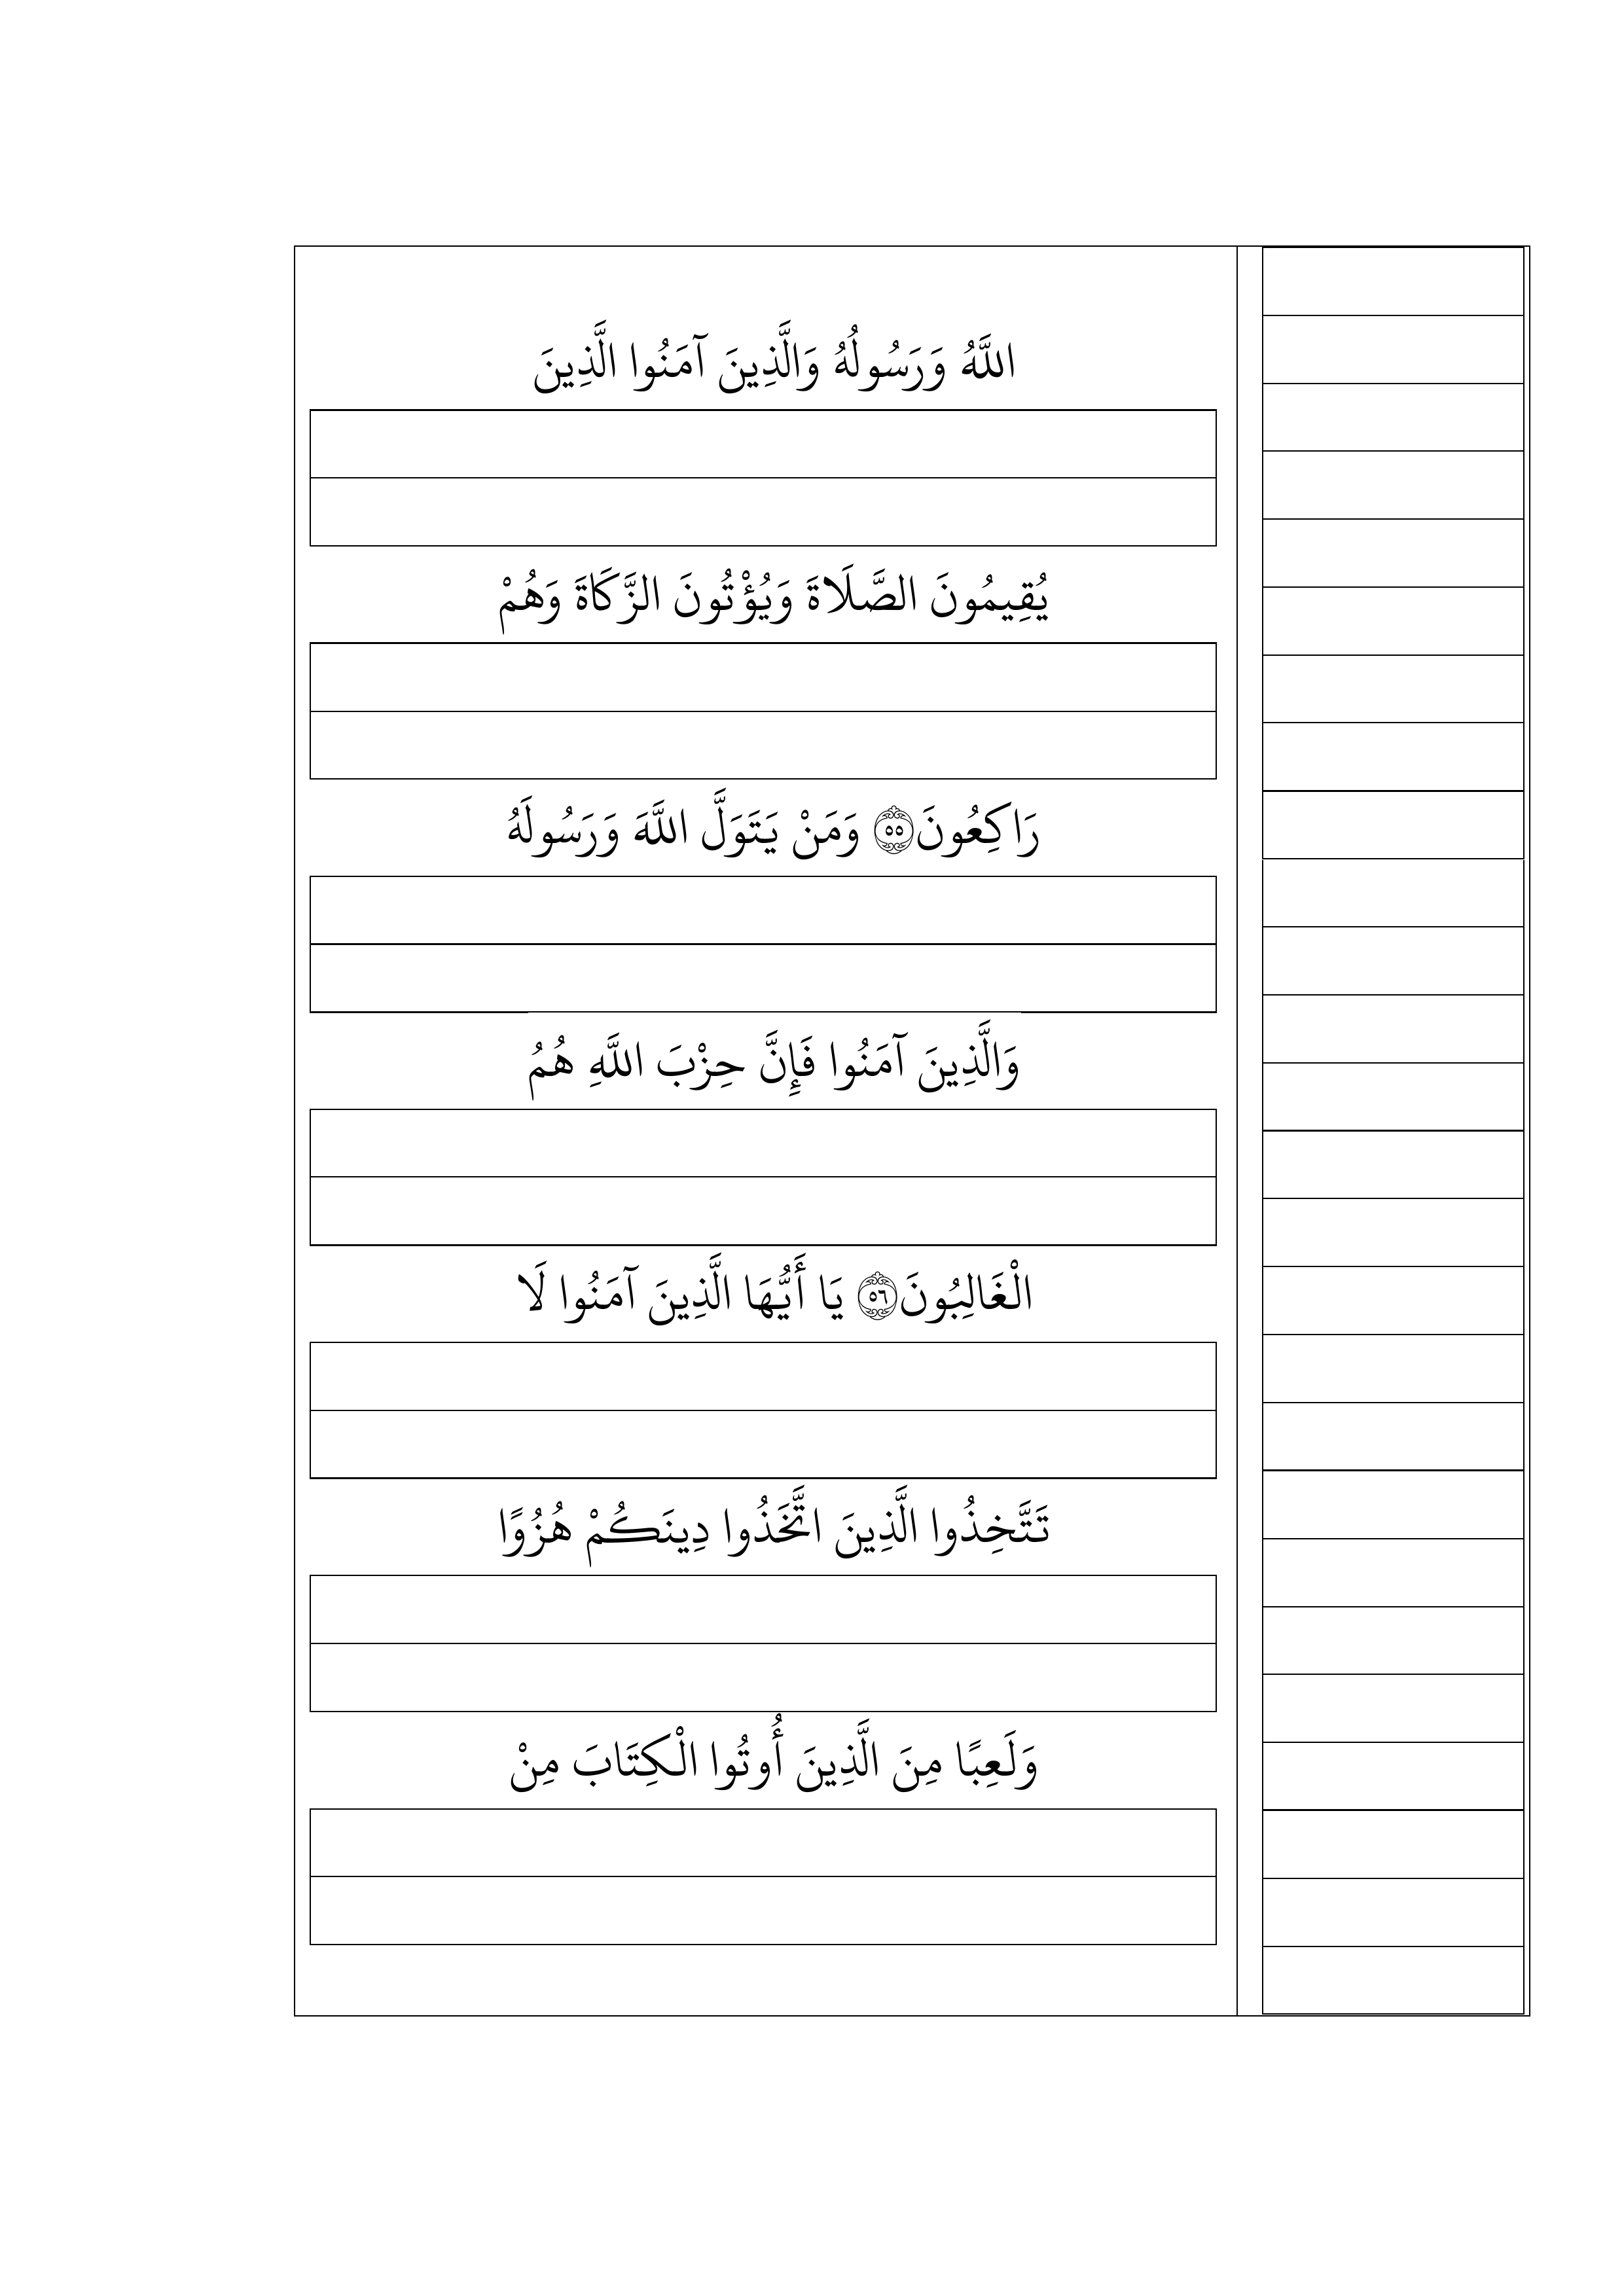 اللَّهُ وَرَسُولُهُ وَالَّذِينَ آمَنُوا الَّذِينَ
يُقِيمُونَ الصَّلَاةَ وَيُؤْتُونَ الزَّكَاةَ وَهُمْ
رَاكِعُونَ۝٥٥ وَمَنْ يَتَوَلَّ اللَّهَ وَرَسُولَهُ
وَالَّذِينَ آمَنُوا فَإِنَّ حِزْبَ اللَّهِ هُمُ
الْغَالِبُونَ۝٥٦ يَا أَيُّهَا الَّذِينَ آمَنُوا لَا
تَتَّخِذُوا الَّذِينَ اتَّخَذُوا دِينَكُمْ هُزُوًا
وَلَعِبًا مِنَ الَّذِينَ أُوتُوا الْكِتَابَ مِنْ